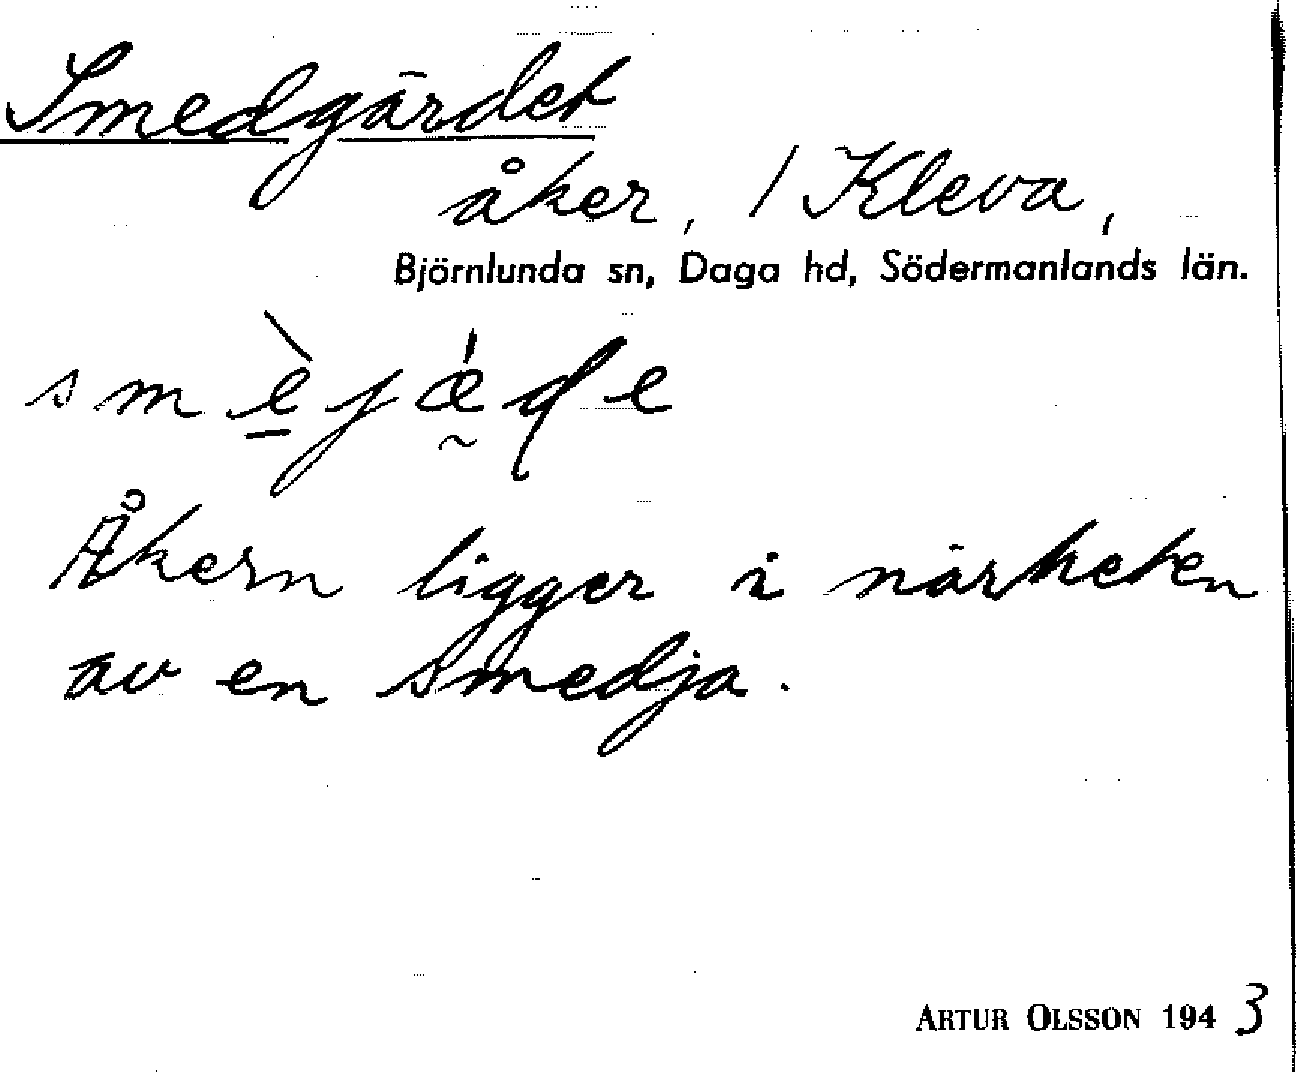 Smedgärdet
åker, / Kleva,
Björnlunda sn, Daga hd, Södermanlands län.
smè̱jǽ̰de
Åkern ligger i närheten
av en smedja.
ARTUR OLSSON 1943